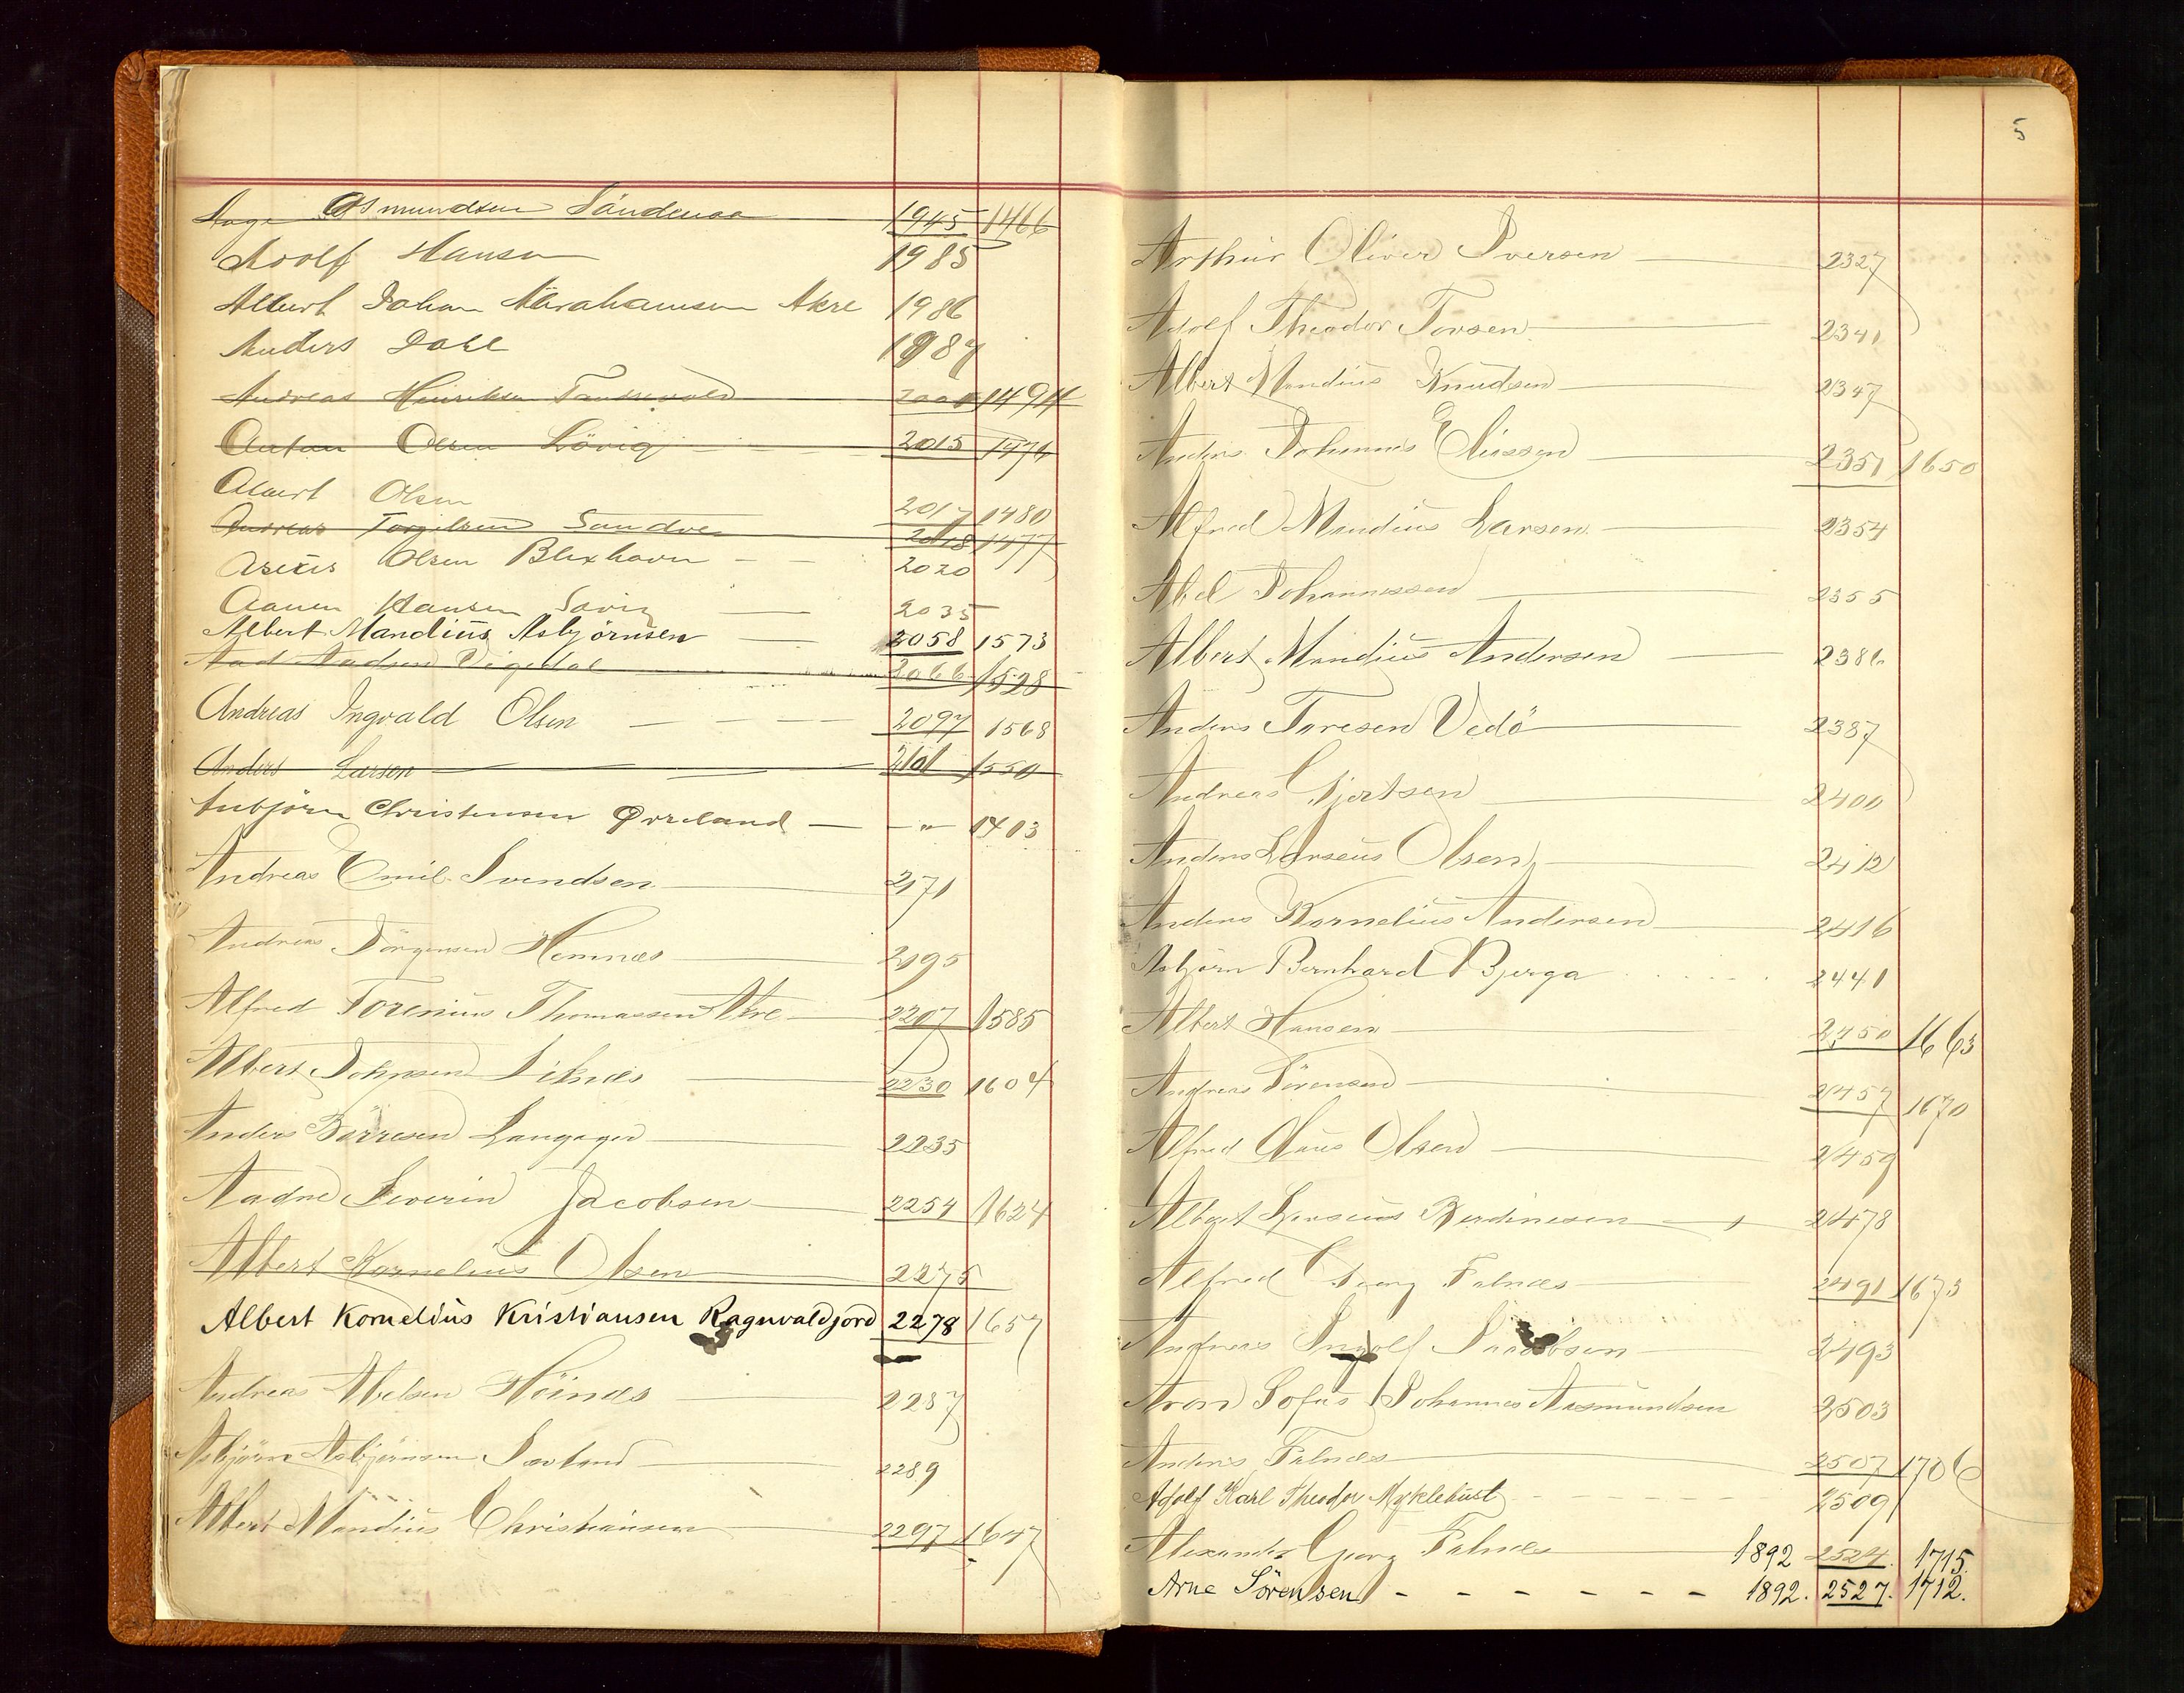 Aage Osmundsen Søndenaa 1945 1466
Adolf Hansen 1985
Albert Johan Abrahamsen Akre 1986
Anders Dahl 1987
Andreas Henriksen 2001 1494
Anton Olsen Lövig 2015 1476
Albert Olsen 2017 1480
Andreas Torgilsen Sandve 2018 1477
Olsen Blixhavn 2020
Aanen Hansen 2035
Albert Mandius Asbjörnsen 2058 1573
Aad Aadsen Vigedal 2066 1528
Andreas Ingvald Olsen 2097 1568
Anders Larsen 2101 1550
Anbjörn Christensen Øvreland — " 1403
Andreas Emil Svendsen 2171
Andreas Jörgensen Hemnæs 2195
Alfred Torenius Thomassen Akre 2207 1585
Albert Johnsen Viknæs 2230 1604
Anders Börresen Langager 2235
Aadne Severin Jacobsen 2254 1624
Albert Kornelius Olsen 2275
Albert Kornelius Kristiansen Ragnvaldjord 2278 1657
Andreas Abelsen Höinæs 2287
Asbjörn Asbjörnsen Sævland 2289
Albert Mandius Christiansen 2297 1647
5
Arthur Oliver Iversen 2327
Adolf Theodor Torsen 2341
Albert Mandius Knudsen 2347
Anders Johannes Eliassen 2351 1650
Alfred Mandius Larsen 2354
Abel Johannessen 2355
Albert Mandius Andersen 2386
Anders Toresen Vedö 2387
Andreas Gjertsen 2400
Anders Larseus Olsen 2412
Anders Kornelius Andersen 2416
Asbjörn Bernhard Bjerga 2441
Albert Hansen 2450 1663
Andreas Sörensen 2457 1670
Alfred Olaus Olsen 2459
Albert Larseus Berdinesen 2478
Alfred Georg Falnæs 2491 1673
Andreas Ingolf Jacobsen 2493
Aron Sofus Johannes Aasmundsen 2503
Anders Falnæs 2507 1706
Adolf Karl Theodor Myklebust 2509
Alexander Georg Falnæs 1892 2524. 1715.
Arne Sörensen - - - - - - 1892. 2527. 1712.